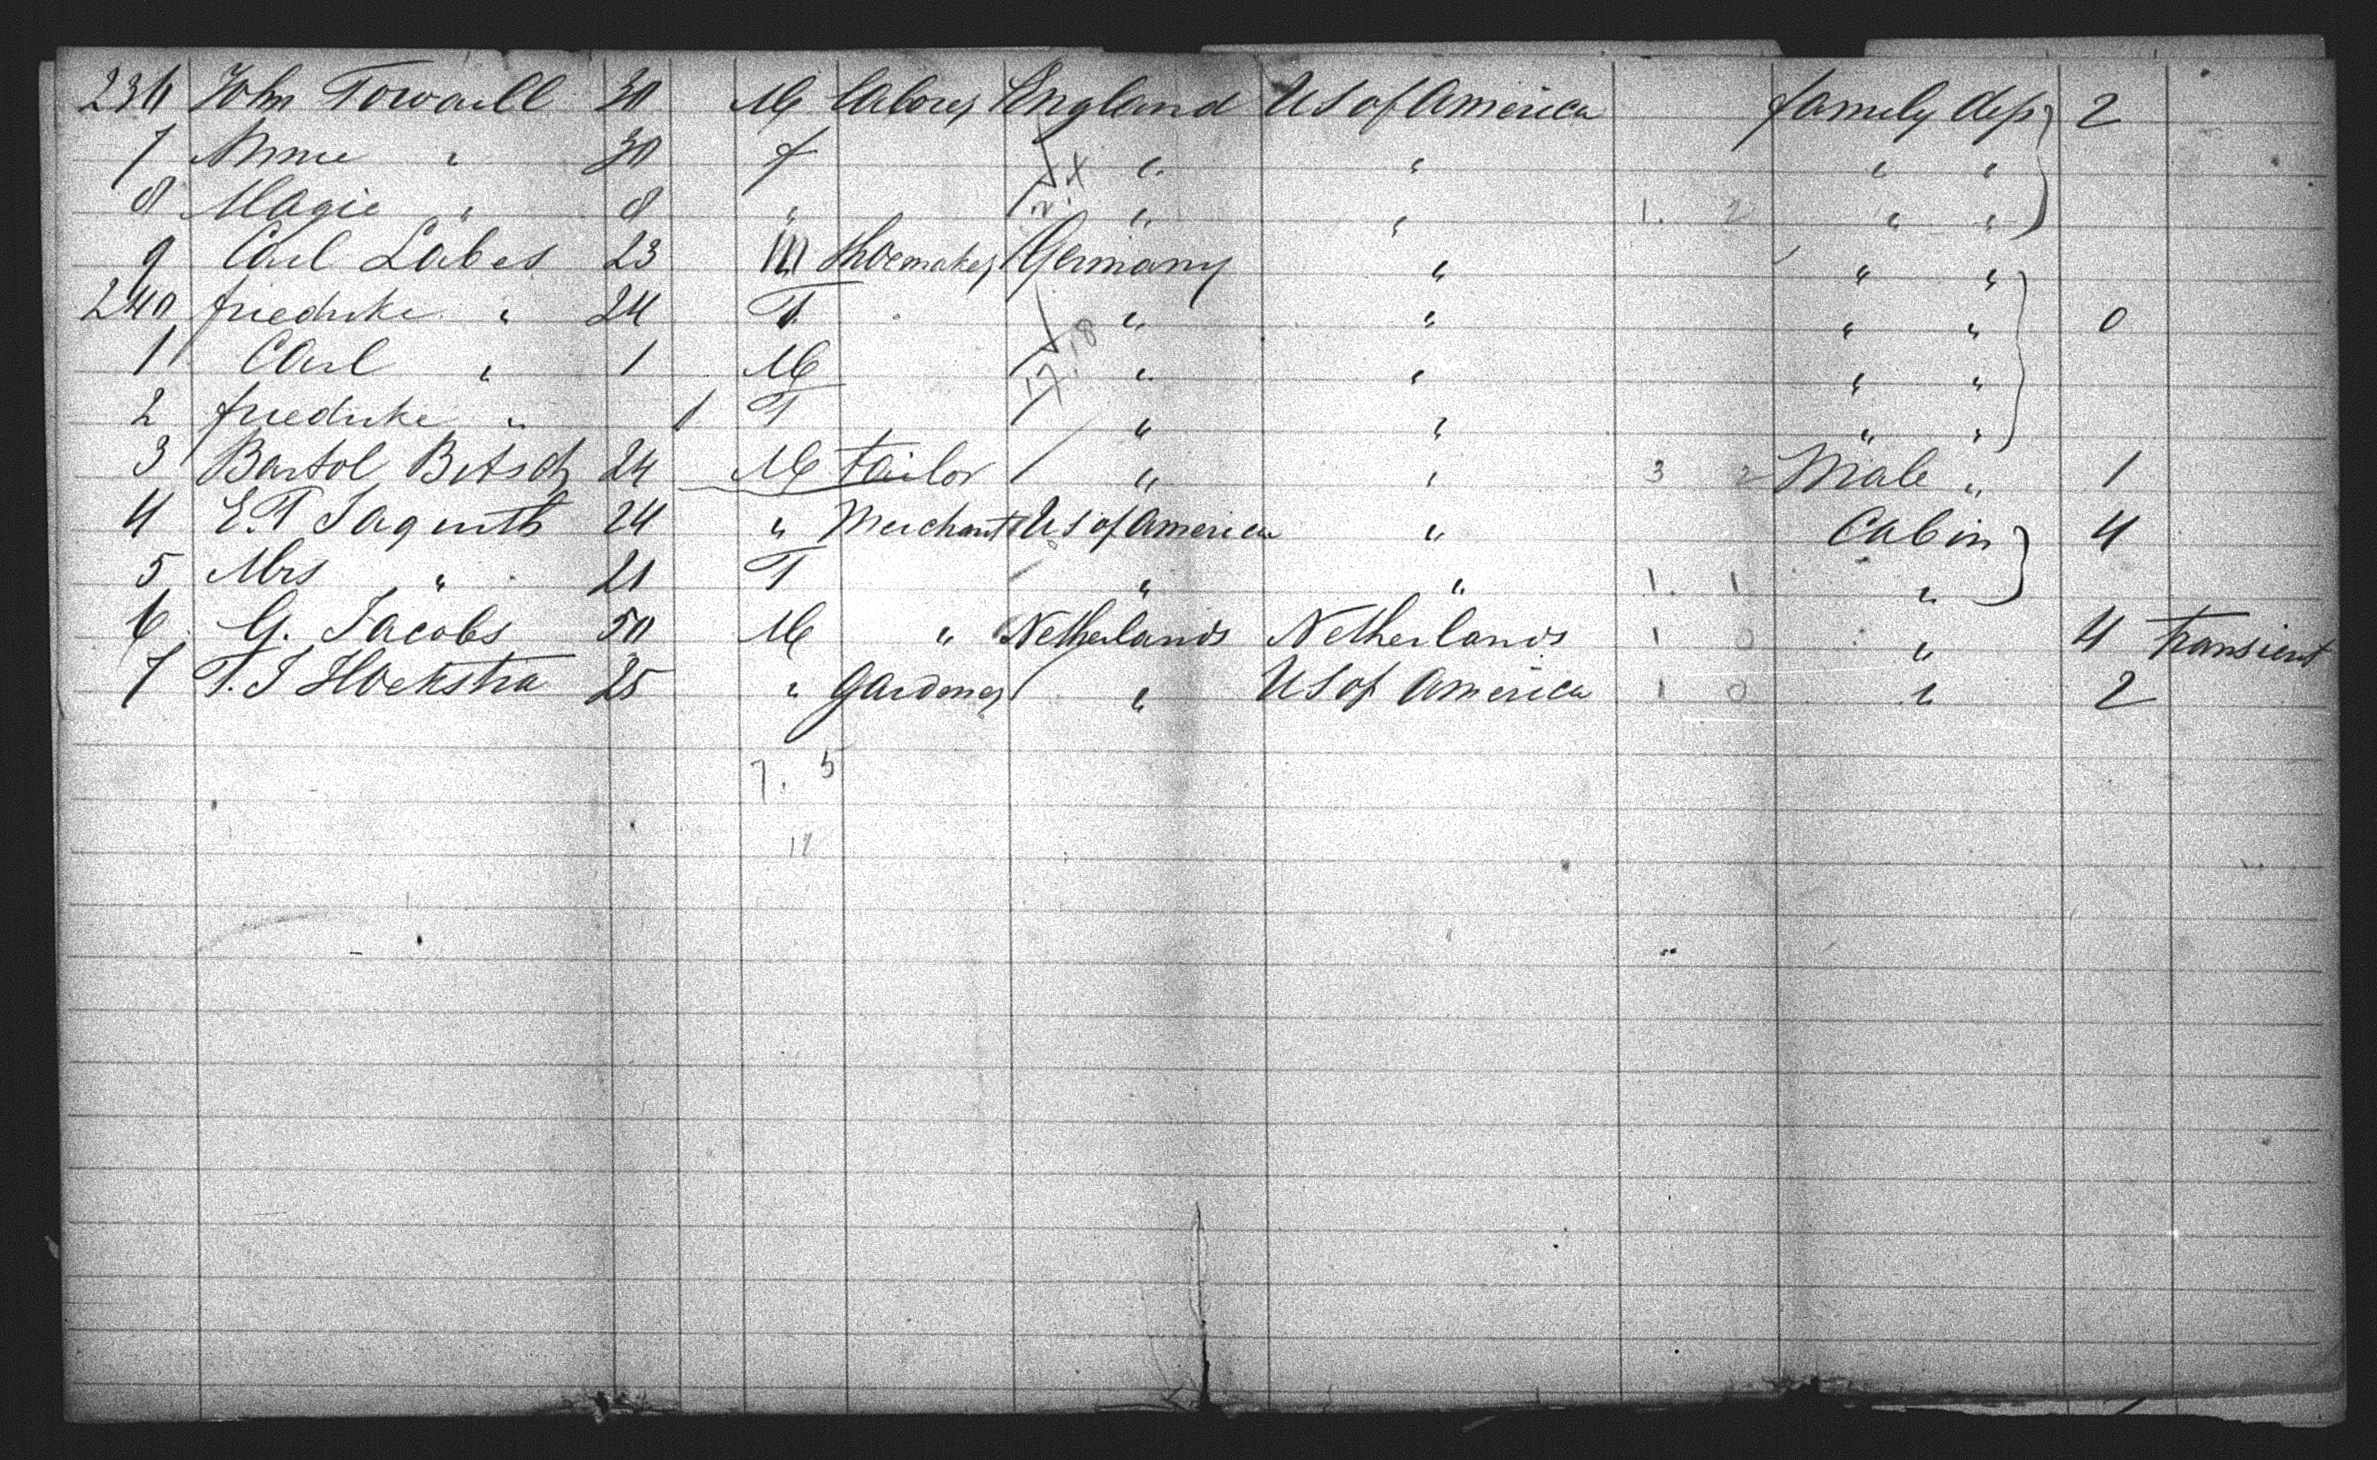 236 John Towaill 30 M Labourer England US of America family dep 2
7 Annie " 30 f " " " "
8 Magie " 8 " " " 1. 2 " "
9 Carl Labes 23 M Shoemaker Germany " " "
240 friedrike " 24 F. " " " " 0
1 Carl " 1 M " " " "
2 friedrike " 1 F " " " "
3 Bartol Betsch 24 M tailor " " 3 2 Male " 1
4 E.F 24 " Merchant US of America " Cabin 4
5 Mrs " 21 F " " 1. 1 "
6 G. Jacobs 50 M " Netherlands Netherlands 1 0 " 4 Transient
7 T. J Hoekstra 25 " Gardener " US of America 1 0 " 2
7. 5